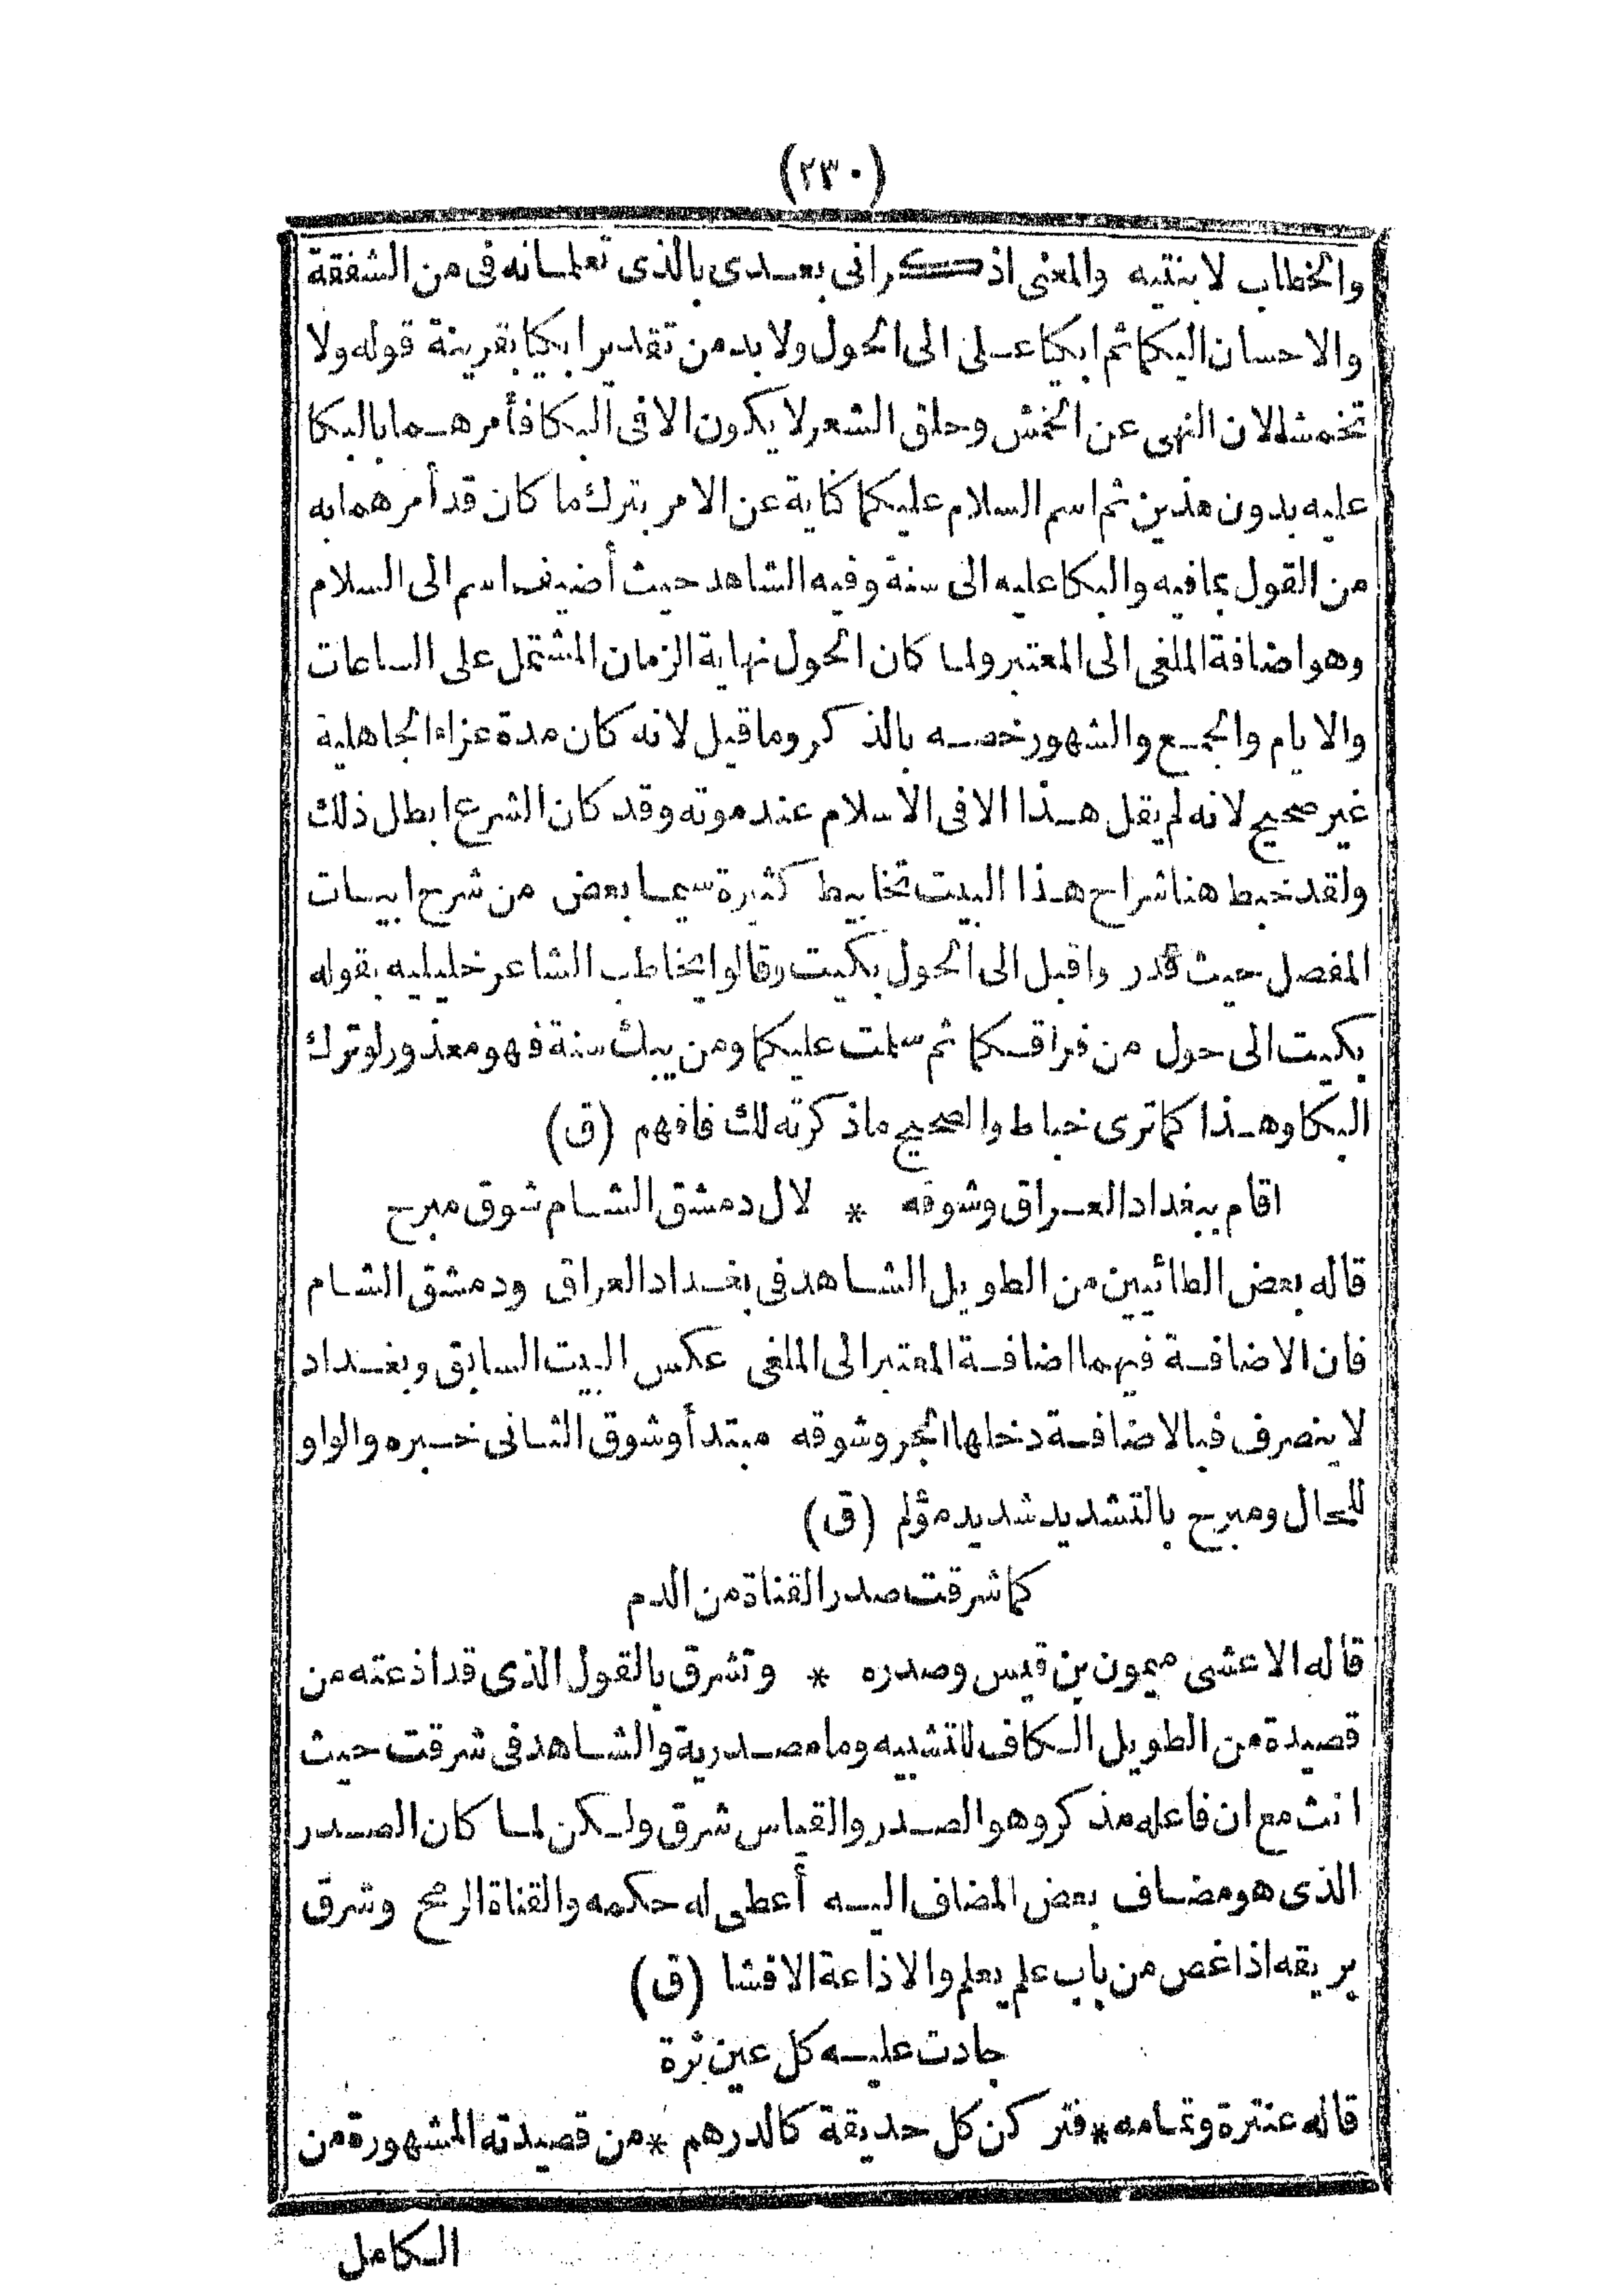 (٢٣٠)
والخطاب لابنتيه والمعنى اذكرانى بعدى بالذى تعلمانه فى من الشفقة
والاحسان اليكما ثم ابكيا على الى الحول ولا بد من تقدير ابكيا بقرينة قوله ولا
تخمشا لان النهى عن الخمش وحلق الشعر لا يكون الا فى البكا فأمرهما بالبكا
عليه بدون هذين ثم اسم السلام عليكما كناية عن الامر بترك ما كان قد أمرهما به
من القول بما فيه والبكا عليه الى سنة وفيه الشاهد حيث أضيف اسم الى السلام
وهو اضافة الملغى الى المعتبر ولما كان الحول نهاية الزمان المشتمل على الساعات
والايام والجمع والشهور خصه بالذكر وما قيل لانه كان مدة عزاء الجاهلية
غير صحيح لانه لم يقل هذا الا فى الاسلام عند موته وقد كان الشرع ابطل ذلك
ولقد خبط هنا شراح هذا البيت تخابيط كثيرة سيما بعض من شرح ابيات
المفصل حيث قدر واقبل الى الحول بكيت وقالوا يخاطب الشاعر خليليه بقوله
بكيت الى حول من فراقكما ثم سلمت عليكما ومن يبك سنة فهو معذور لو ترك
البكا وهذا كما ترى خباط والصحيح ما ذكرته لك فافهم (ق)
اقام ببغداد العراق وشوقه * لال دمشق الشام شوق مبرح
قاله بعض الطائيين من الطويل الشاهد فى بغداد العراق ودمشق الشام
فان الاضافة فيهما اضافة المعتبر الى الملغى عكس البيت السابق وبغداد
لا ينصرف فبالاضافة دخلها الجر وشوقه مبتدأ وشوق الثانى خبره والواو
للحال ومبرح بالتشديد شديد مؤلم (ق)
كما شرقت صدر القناة من الدم
قاله الاعشى ميمون بن قيس وصدره * وتشرق بالقول الذى قد اذعته من
قصيدة من الطويل الكاف للتشبيه وما مصدرية والشاهد فى شرقت حيث
انث مع ان فاعله مذكر وهو الصدر والقياس شرق ولكن لما كان الصدر
الذى هو مضاف بعض المضاف اليه أعطى له حكمه والقناة الرمح وشرق
بريقه اذا غص من باب علم يعلم والاذاعة الافشا (ق)
جادت عليه كل عين ثرة
قاله عنترة وتمامه * فتركن كل حديقة كالدرهم * من قصيدته المشهورة من
الكامل